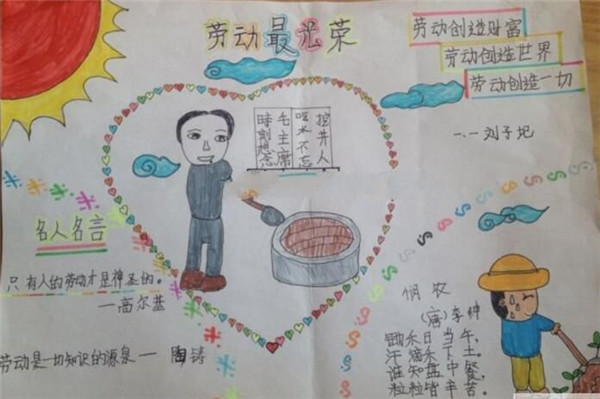 劳动最光荣
劳动创造财富
劳动创造世界
劳动创造一切
——刘子圯
挖井人
吃水不忘
毛主席
時刻想念
名人名言
只有人的劳动才是神圣的。
——高尔基
劳动是一切知识的源泉 — 陶铸
悯农
(唐)李绅
锄禾日当午,
汗滴禾下土。
谁知盘中餐,
粒粒皆辛苦。